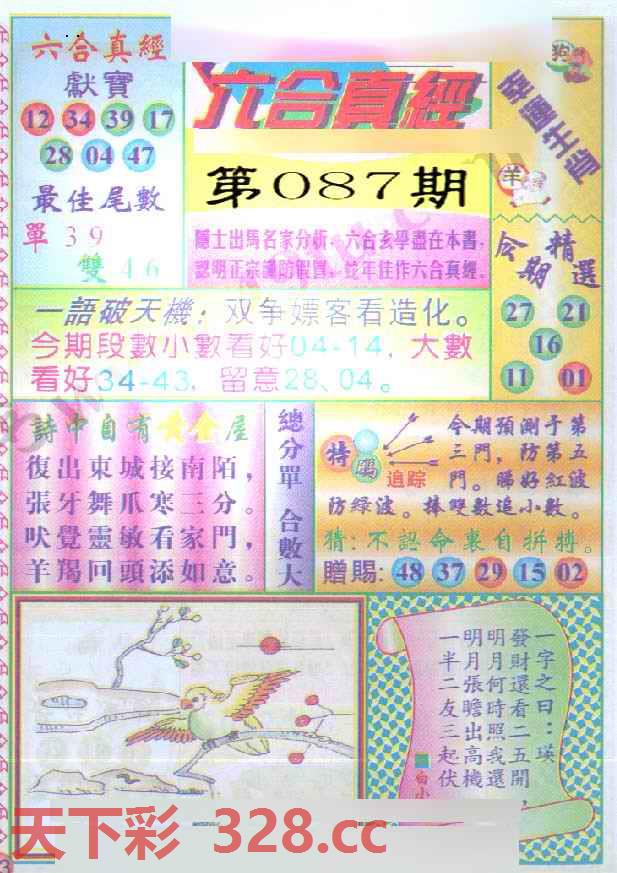 六合真經
獻寶
12 34 39 17
28 04 47
最佳尾數
單39
雙46
六合真經
第087期
隱士出馬名家分析，六合玄學盡在本書，
認明正宗謹防假冒，蛇年佳作六合真經。
狗
幸運生肖
羊
今期精選
27 21
16
11 01
一語破天機：双争嫖客看造化。
今期段數小數看好04-14，大數
看好34-43，留意28、04。
詩中自有黃金屋
復出東城接南陌，
張牙舞爪寒三分。
吠覺靈敏看家門，
羊羯回頭添如意。
總分單 合數大
特碼
追踪
今期預測于第
三門，防第五
門。睇好紅波
防緑波。捧雙數追小數。
猜：不認命裏自拼搏。
贈賜：48 37 29 15 02
一字之曰：瑛
發財還看二五開，
明月何時照我還
明月張瞻出高機
一半二友三起伏
白小
天下彩 328.cc